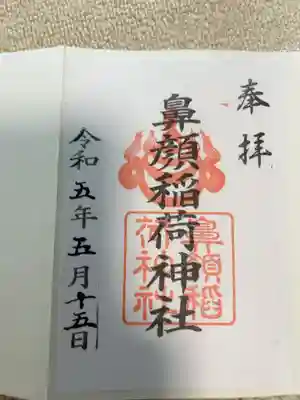 奉拝
鼻顔稲荷神社
鼻顔稲荷神社
令和五年五月十五日